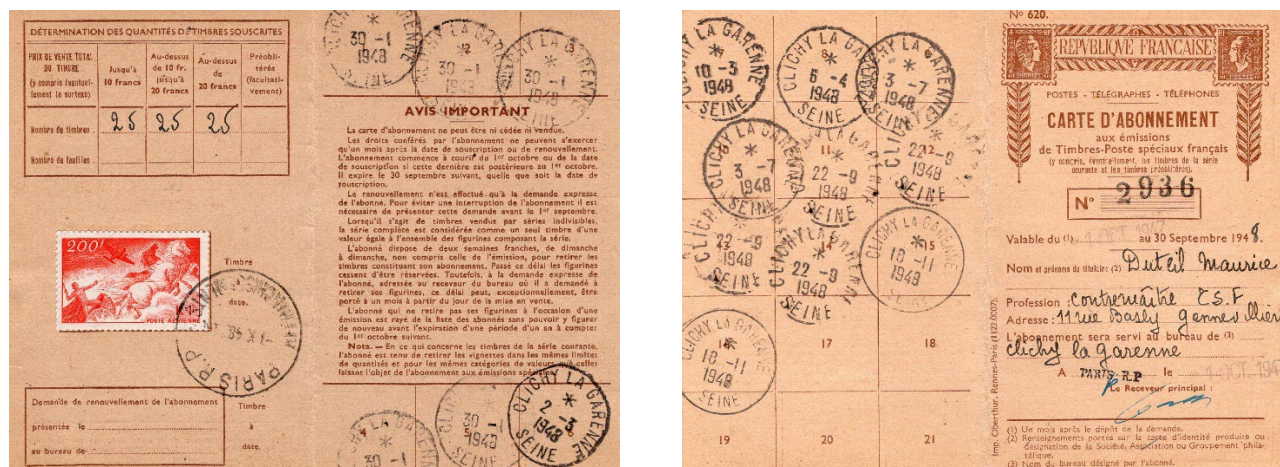 DÉTERMINATION DES QUANTITÉS DE TIMBRES SOUSCRITES
PRIX DE VENTE TOTAL
DU TIMBRE
(y compris éventuel-
lement la surtaxe)
Jusqu'à
10 francs
Au-dessus
de 10 fr.
jusqu'à
20 francs
Au-dessus
de
20 francs
Préobli-
térés
(facultati-
vement)
Nombre de timbres
25 25 25
Nombre de feuilles
200f
POSTE AÉRIENNE
Timbre
à
date.
PARIS R.P
Demande de renouvellement de l'abonnement
présentée le
au bureau de
Timbre
à
date.
CLICHY LA GARENNE
30 -1
1948
SEINE
2
30 -1
1948
CLICHY LA GARENNE
3
30 -1
1948
SEINE
AVIS IMPORTANT
La carte d'abonnement ne peut être ni cédée ni vendue.
Les droits conférés par l'abonnement ne peuvent s'exercer
qu'un mois après la date de souscription ou de renouvellement.
L'abonnement commence à courir du 1er octobre ou de la date
de souscription si cette dernière est postérieure au 1er octobre.
Il expire le 30 septembre suivant, quelle que soit la date de
souscription.
Le renouvellement n'est effectué qu'à la demande expresse
de l'abonné. Pour éviter une interruption de l'abonnement il est
nécessaire de présenter cette demande avant le 1er septembre.
Lorsqu'il s'agit de timbres vendus par séries indivisibles,
la série complète est considérée comme un seul timbre d'une
valeur égale à l'ensemble des figurines composant la série.
L'abonné dispose de deux semaines franches, de dimanche
à dimanche, non compris celle de l'émission, pour retirer les
timbres constituant son abonnement. Passé ce délai les figurines
cessent d'être réservées. Toutefois, à la demande expresse de
l'abonné, adressée au receveur du bureau où il a demandé à
retirer ses figurines, ce délai peut, exceptionnellement, être
porté à un mois à partir du jour de la mise en vente.
L'abonné qui ne retire pas ses figurines à l'occasion d'une
émission est rayé de la liste des abonnés sans pouvoir y figurer
de nouveau avant l'expiration d'une période d'un an à compter
du 1er octobre suivant.
Nota. — En ce qui concerne les timbres de la série courante,
l'abonné est tenu de retirer les vignettes dans les mêmes limites
de quantités et pour les mêmes catégories de valeurs que celles
faisant l'objet de l'abonnement aux émissions spéciales.
CLICHY LA GARENNE
30 -1
CLICHY
30 -1
1948
SEINE
CLICHY LA GARENNE
2 -3
1948
SEINE
LA GARENNE
10 -3
1948
SEINE
CLICHY LA GARENNE
6 -4
1948
SEINE
LA GARENNE
3 -7
1948
CLICHY LA GARENNE
3 -7
1948
SEINE
11
22 -9
1948
SEINE
12
22 -9
1948
SEINE
13
22 -9
1948
14
CLICHY LA GARENNE
22 -9
1948
SEINE
15
CLICHY LA GARENNE
10 -11
1948
SEINE
16
CLICHY LA GARENNE
10 -11
1948
SEINE
17
18
19
20
21
Imp. Oberthur, Rennes-Paris
No 620.
REPVBLIQVE FRANÇAISE
POSTES
POSTES
POSTES - TÉLÉGRAPHES - TÉLÉPHONES
CARTE D'ABONNEMENT
aux émissions
de Timbres-Poste spéciaux français
(y compris, éventuellement, les timbres de la série
courante et les timbres préoblitérés).
N° 2936
Valable du (1) 1 OCT. au 30 Septembre 1948.
Nom et prénoms du titulaire (2) Duteil Maurice
Profession : contremaître T.S.F
Adresse : 11 rue Basly Gennevilliers
L'abonnement sera servi au bureau de (3)
Clichy la Garenne
A PARIS.R.P le 1 OCT. 194
Le Receveur principal :
(1) Un mois après le dépôt de la demande.
(2) Renseignements portés sur la carte d'identité produite ou
désignation de la Société, Association ou Groupement phila-
télique.
(3) Nom du bureau désigné par l'abonné.